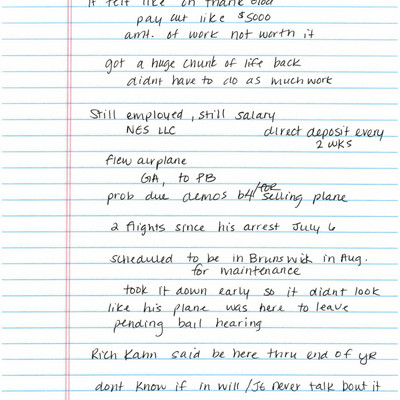 It felt like oh thank God
pay cut like $5000
amt. of work not worth it
got a huge chunk of life back
didnt have to do as much work
Still employed, still salary
NES LLC direct deposit every
2 WKS
flew airplane
GA, to PB
prob due demos b4/for selling plane
2 flights since his arrest July 6
scheduled to be in Brunswick in Aug.
for maintenance
took it down early so it didnt look
like his plane was here to leave
pending bail hearing
Rich Kahn said be here thru end of yr
dont know if in will/JE never talk bout it